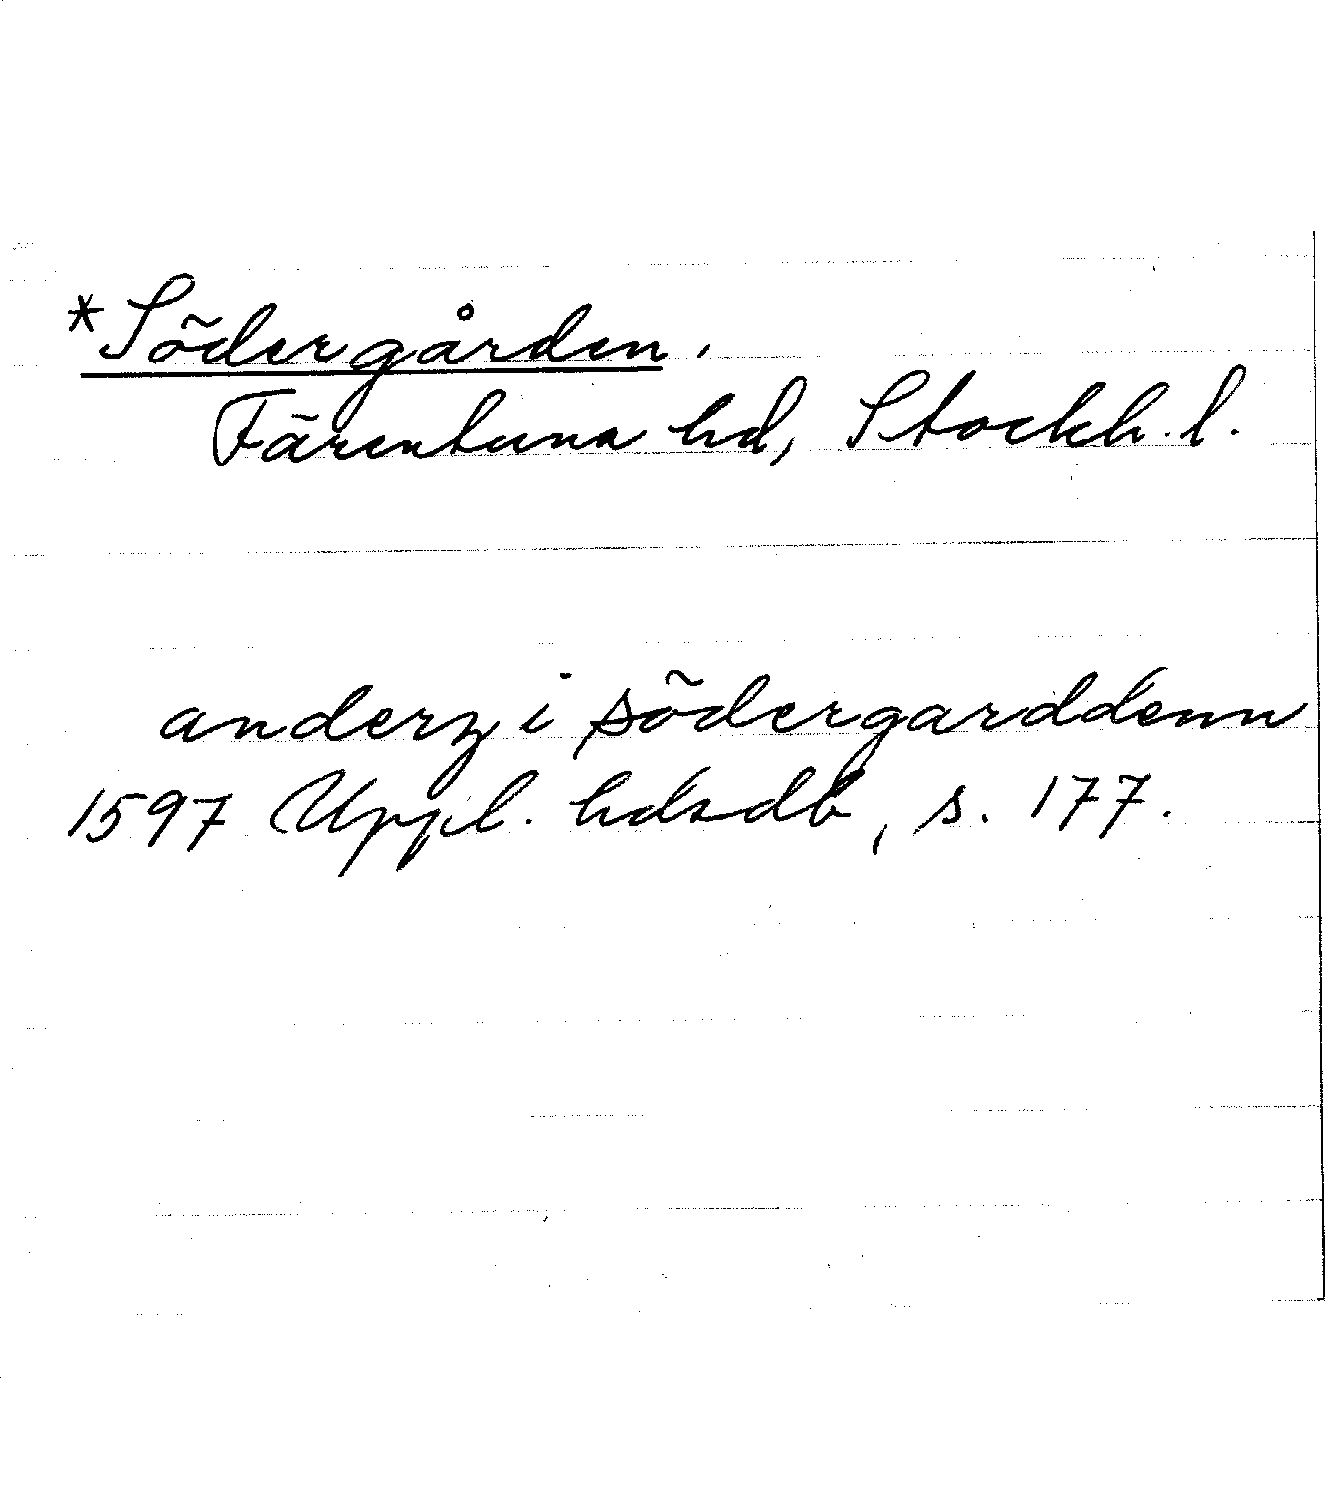 *Södergården.
Färentuna hd, Stockh. l.
anderz i södergarddenn
1597 Uppl. hdsdb, s. 177.